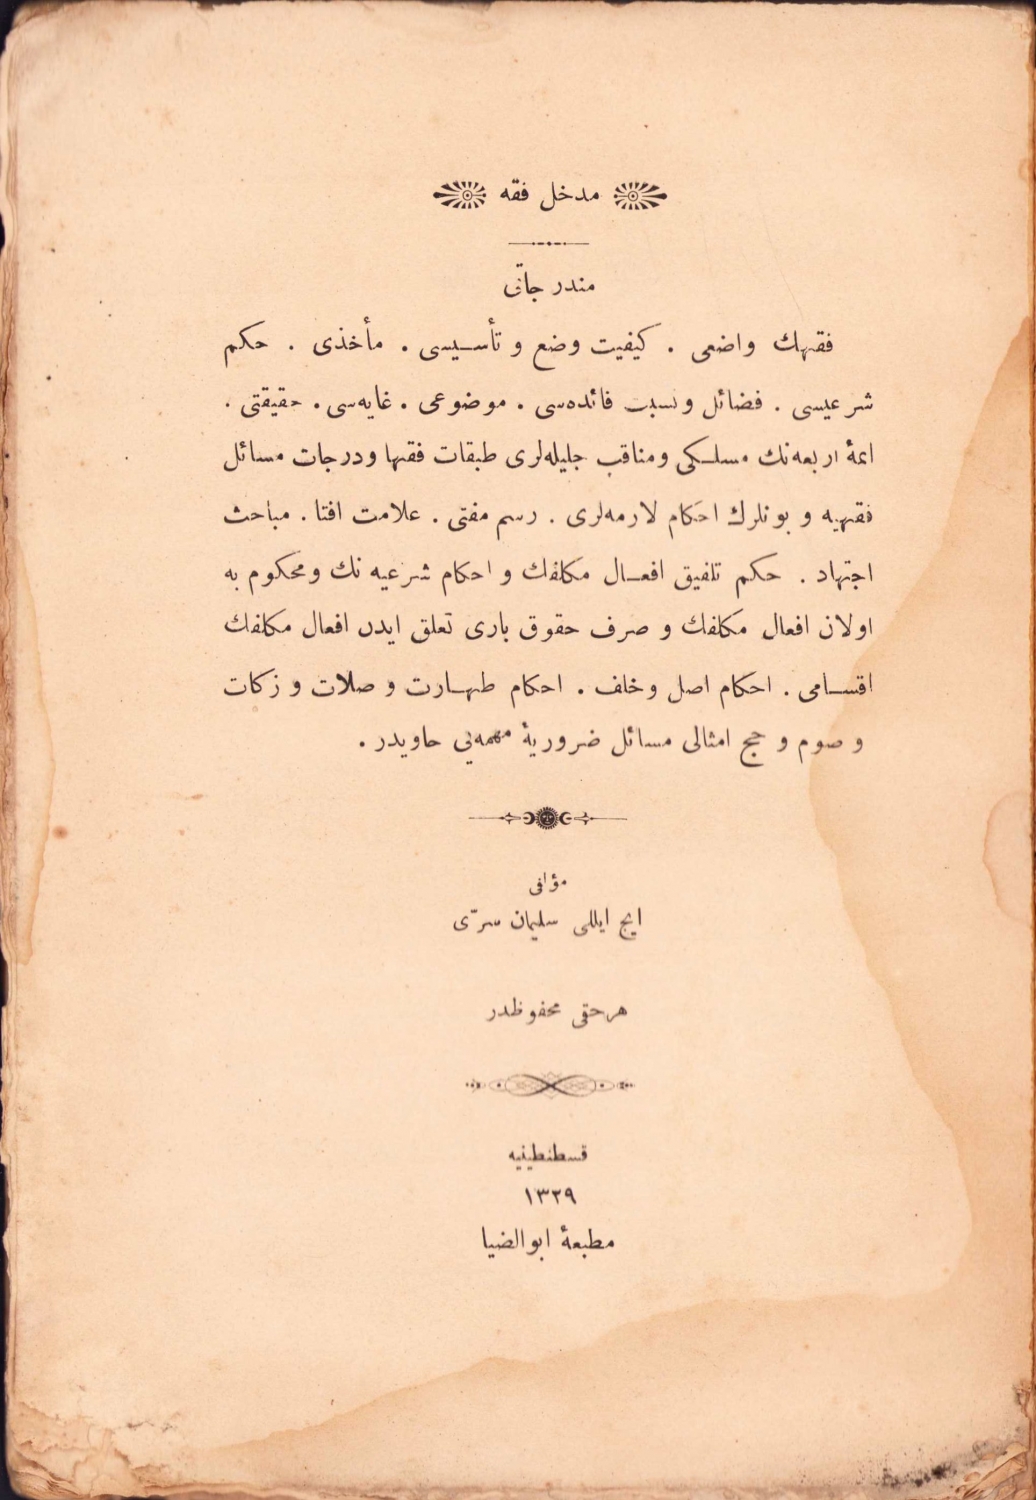 مدخل فقه
مندرجاتی
فقهك واضعی . كیفیت وضع و تأسیسی . مأخذی . حكم
شرعیسی . فضائل و نسبت فائده‌سی . موضوعی . غایه‌سی . حقیقتی .
ائمهٔ اربعه‌نك مسلكی ومناقب جلیله‌لری طبقات فقها ودرجات مسائل
فقهیه و بونلرك احكام لازمه‌لری . رسم مفتی . علامت افتا . مباحث
اجتهاد . حكم تلفیق افعال مكلفك و احكام شرعیه نك ومحكوم به
اولان افعال مكلفك و صرف حقوق باری تعلق ایدن افعال مكلفك
اقسامی . احكام اصل وخلف . احكام طهارت و صلات و زكات
و صوم و حج امثالی مسائل ضروریهٔ مهمه‌یی حاویدر .
مؤلفی
ایچ ایللی سلیمان سرّی
هرحقی محفوظدر
قسطنطینیه
١٣٢٩
مطبعهٔ ابوالضیا